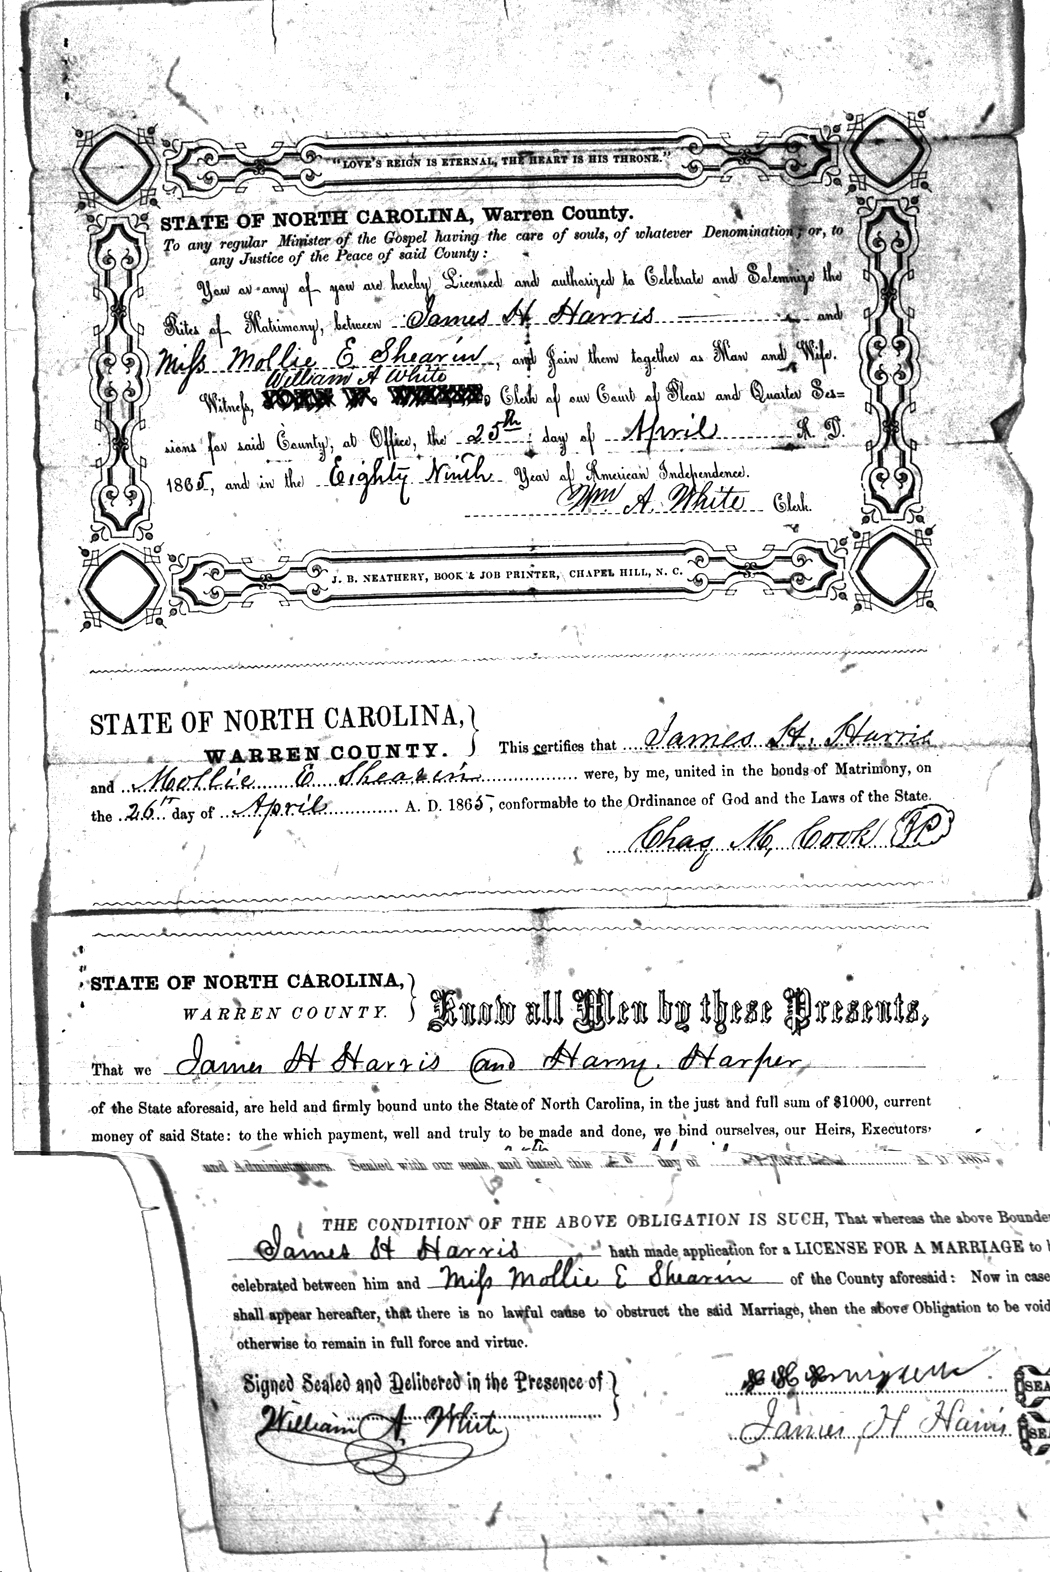 "LOVE'S REIGN IS ETERNAL, THE HEART IS HIS THRONE."
STATE OF NORTH CAROLINA, Warren County.
To any regular Minister of the Gospel having the care of souls, of whatever Denomination; or, to
any Justice of the Peace of said County:
You or any of you are hereby Licensed and authorized to Celebrate and Solemnize the
Rites of Matrimony, between James H Harris and
Miss Mollie E Shearin, and Join them together as Man and Wife.
William A White
Witness, Clerk of our Court of Pleas and Quarter Ses=
sions for said County, at Office, the 25th day of April A. D.
1865, and in the Eighty Ninth Year of American Independence.
Wm A. White Clerk.
J. B. NEATHERY, BOOK & JOB PRINTER, CHAPEL HILL, N. C.
STATE OF NORTH CAROLINA,
WARREN COUNTY.
This certifies that James H. Harris
and Mollie E Shearin were, by me, united in the bonds of Matrimony, on
the 26th day of April A. D. 1865, conformable to the Ordinance of God and the Laws of the State.
Chas M, Cook JP
STATE OF NORTH CAROLINA,
WARREN COUNTY.
Know all Men by these Presents,
That we James H Harris and Harry Harper
of the State aforesaid, are held and firmly bound unto the State of North Carolina, in the just and full sum of $1000, current
money of said State: to the which payment, well and truly to be made and done, we bind ourselves, our Heirs, Executors
and Administrators. Sealed with our seals, and dated this day of A D 1865,
THE CONDITION OF THE ABOVE OBLIGATION IS SUCH, That whereas the above Bounde
James H Harris hath made application for a LICENSE FOR A MARRIAGE to b
celebrated between him and Miss Mollie E Shearin of the County aforesaid: Now in case
shall appear hereafter, that there is no lawful cause to obstruct the said Marriage, then the above Obligation to be void
otherwise to remain in full force and virtue.
Signed Sealed and Delibered in the Presence of
SEA
William A. White
James H Harris
SEA